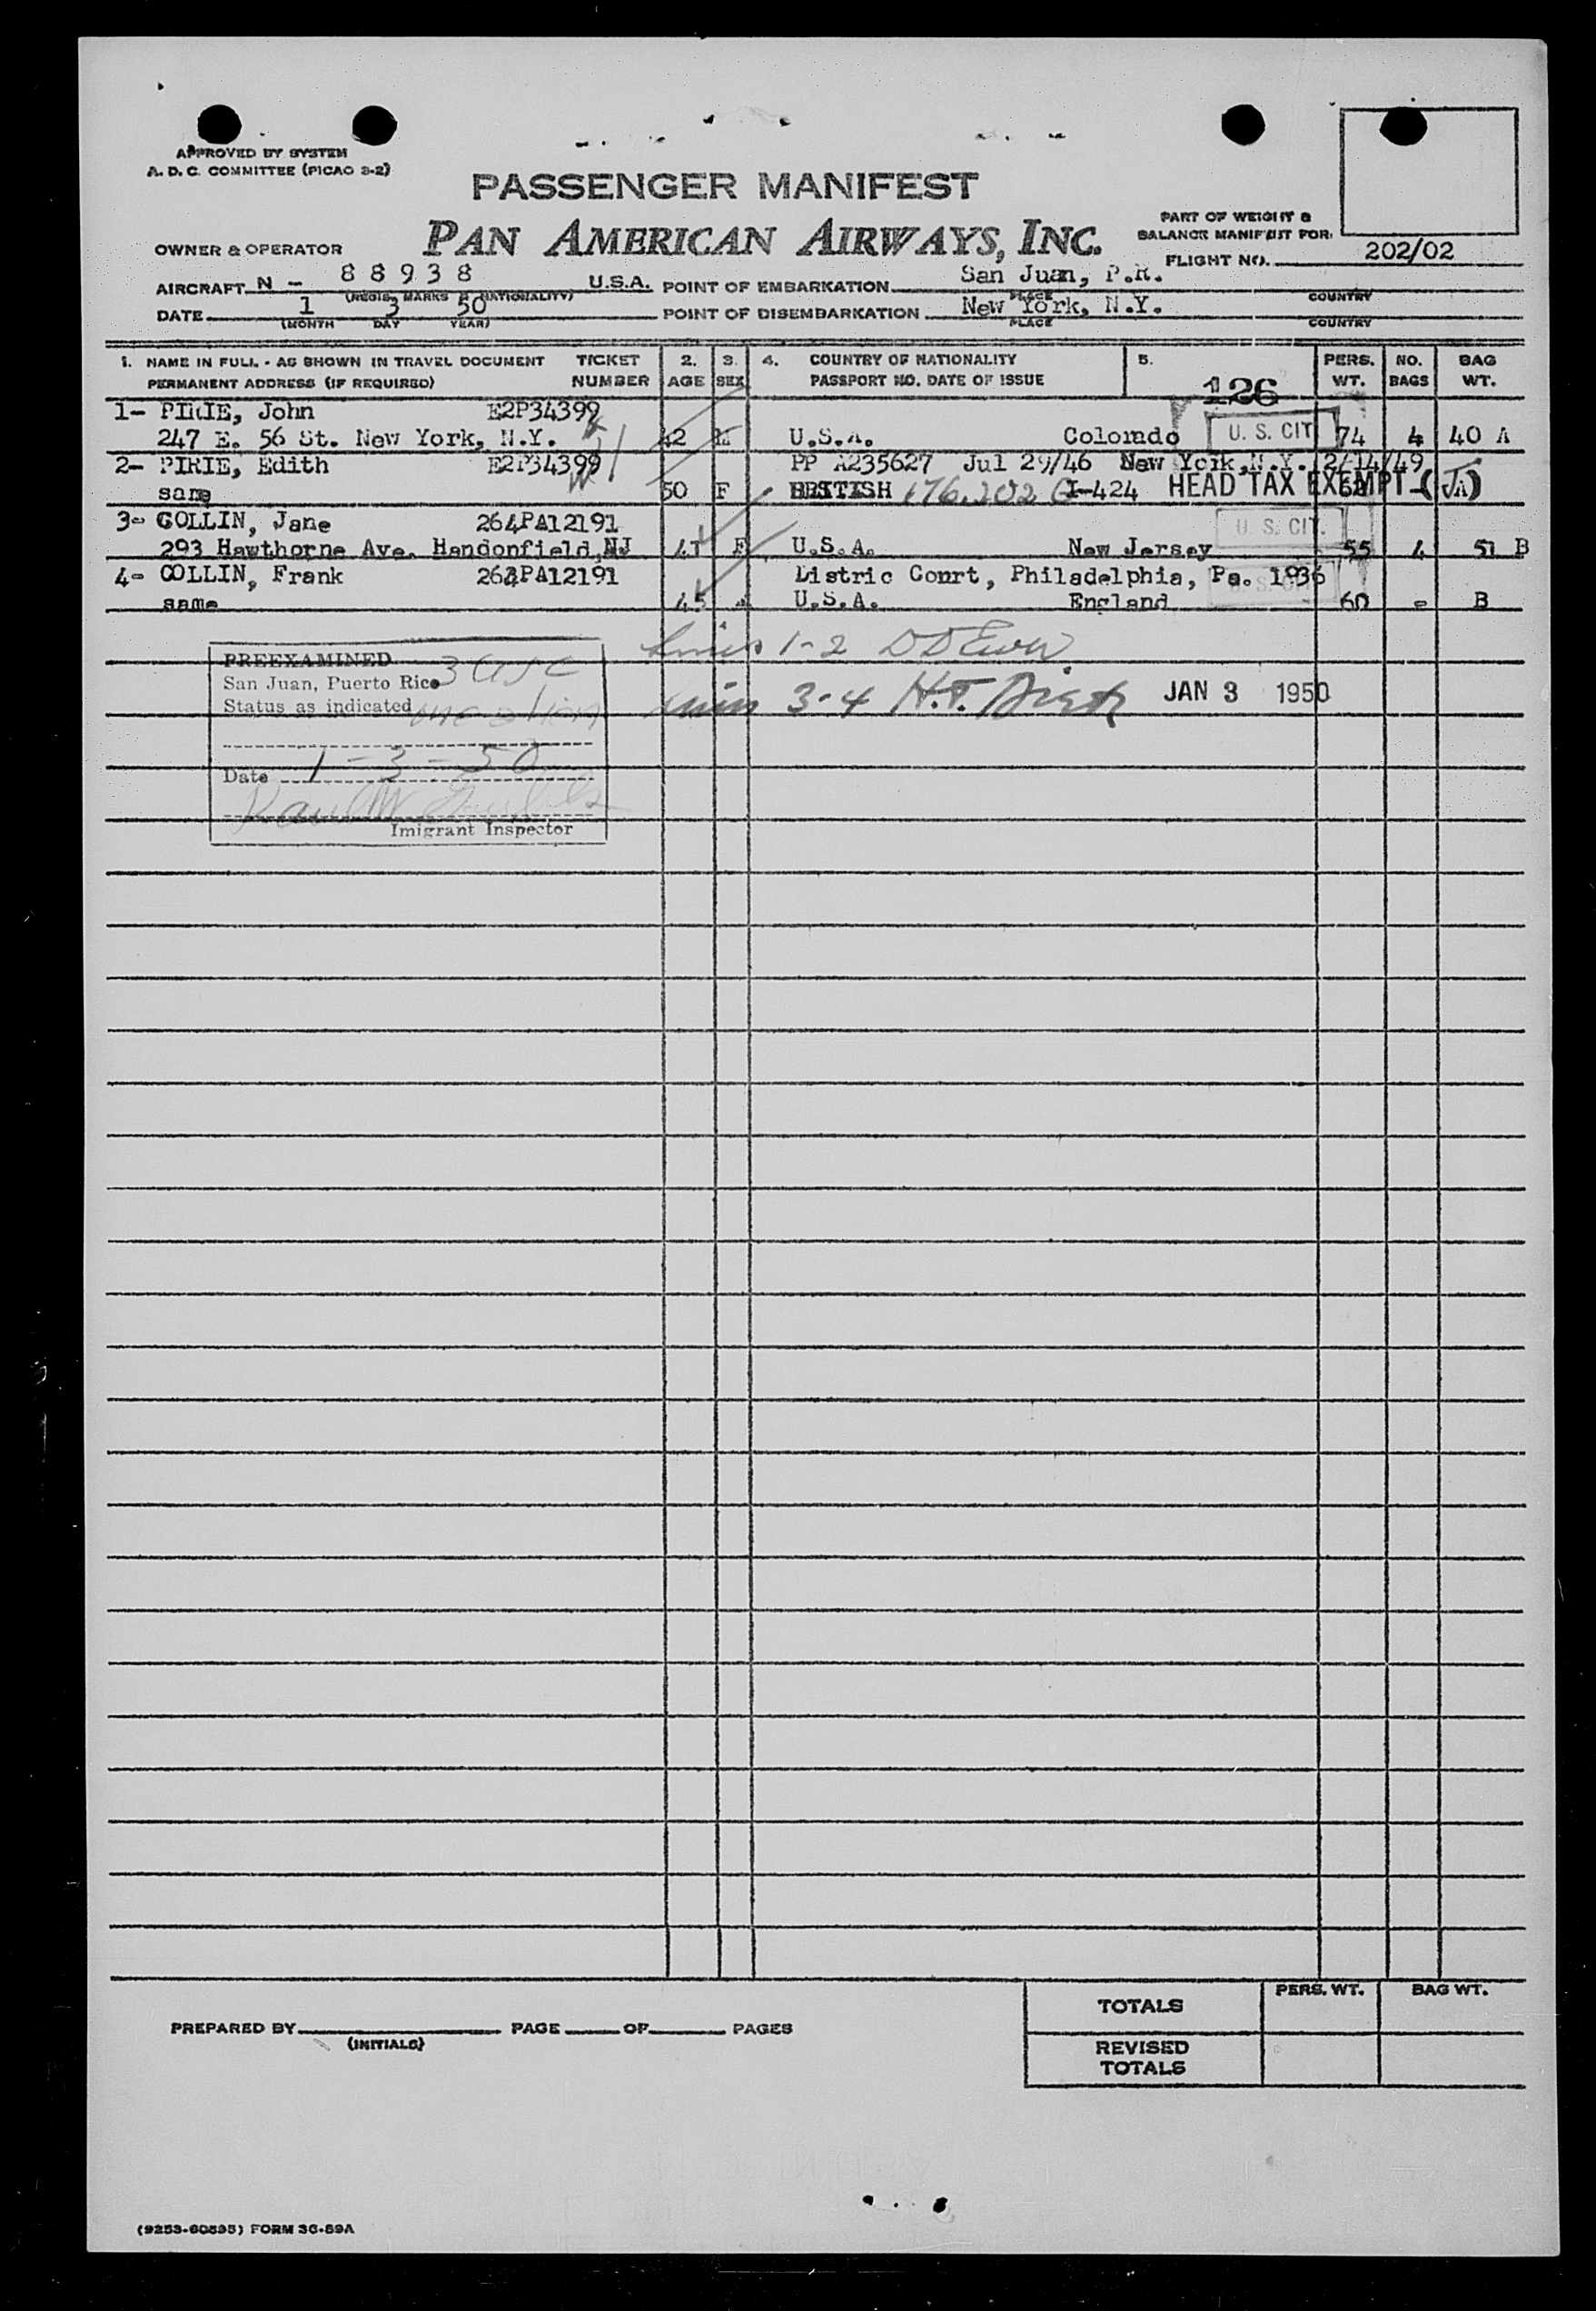 APPROVED BY SYSTEM
A. D. C. COMMITTEE (PICAO 3-2)
PASSENGER MANIFEST
PAN AMERICAN AIRWAYS, INC.
OWNER & OPERATOR
PART OF WEIGHT &
BALANCE MANIFEST FOR:
FLIGHT NO. 202/02
AIRCRAFT N - 88938 U.S.A.
(REGIS. MARKS & NATIONALITY)
POINT OF EMBARKATION San Juan, P.R.
PLACE COUNTRY
DATE 1 3 50
(MONTH DAY YEAR)
POINT OF DISEMBARKATION New York, N.Y.
PLACE COUNTRY
1. NAME IN FULL - AS SHOWN IN TRAVEL DOCUMENT TICKET 2. 3. 4. COUNTRY OF NATIONALITY 5. PERS. NO. BAG
PERMANENT ADDRESS (IF REQUIRED) NUMBER AGE SEX PASSPORT NO. DATE OF ISSUE WT. BAGS WT.
126
1- PIRIE, John E2P34399
247 E. 56 St. New York, N.Y. 42 M U.S.A. Colorado U. S. CIT 74 4 40 A
2- PIRIE, Edith E2P34399 PP A235627 Jul 29/46 New York, N.Y. 2/14/49
same 50 F BRITISH 176.202 I-424 HEAD TAX EXEMPT-(JA)
3- COLLIN, Jane 264PA12191 U. S. CIT.
293 Hawthorne Ave. Handonfield, NJ 41 F U.S.A. New Jersey 55 4 51 B
4- COLLIN, Frank 264PA12191 Distric Court, Philadelphia, Pa. 1936
same 45 U.S.A. England 60 - B
Lines 1-2
Lines 3-4 H.T. JAN 3 1950
PREEXAMINED
San Juan, Puerto Rico
Status as indicated
Date 1-3-50
Imigrant Inspector
TOTALS PERS. WT. BAG WT.
PREPARED BY PAGE OF PAGES
(INITIALS)
REVISED
TOTALS
(9253-60595) FORM 36-59A